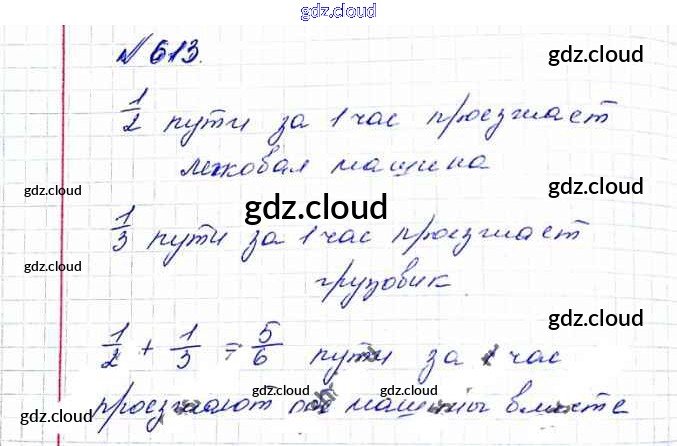 gdz.cloud
№ 613.
gdz.cloud
gdz.cloud
1/2 пути за 1 час проезжает
легковая машина
gdz.cloud
gdz.cloud
gdz.cloud
1/3 пути за 1 час проезжает
грузовик
gdz.cloud
gdz.cloud
1/2 + 1/3 = 5/6 пути за 1 час
gdz.cloud
gdz.cloud
проезжают машины вместе
gdz.cloud